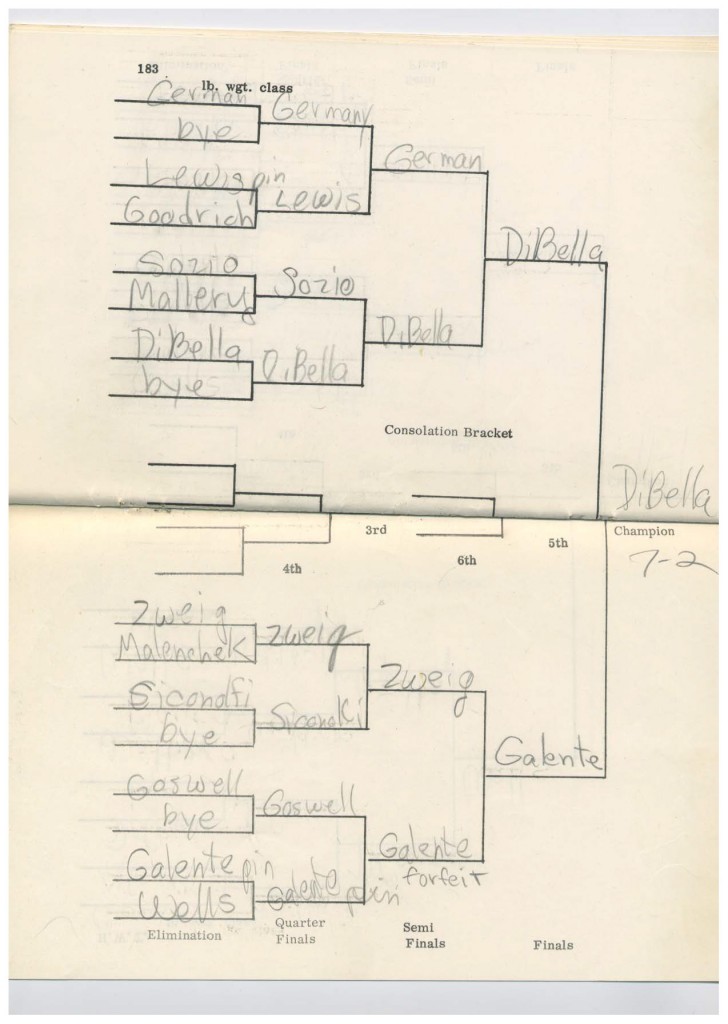 183
lb. wgt. class
German
Germany
bye
German
Lewis pin
Lewis
Goodrich
DiBella
Sozio
Sozio
Mallery
DiBella
DiBella
DiBella
bye
Consolation Bracket
DiBella
3rd
Champion
5th
4th
6th
7-2
Zweig
Zweig
Malenchek
Zweig
Sicondfi
Siconki
bye
Galente
Goswell
Goswell
bye
Galente
Galente pin
forfeit
Galente pin
Wells
Elimination
Quarter
Finals
Semi
Finals
Finals